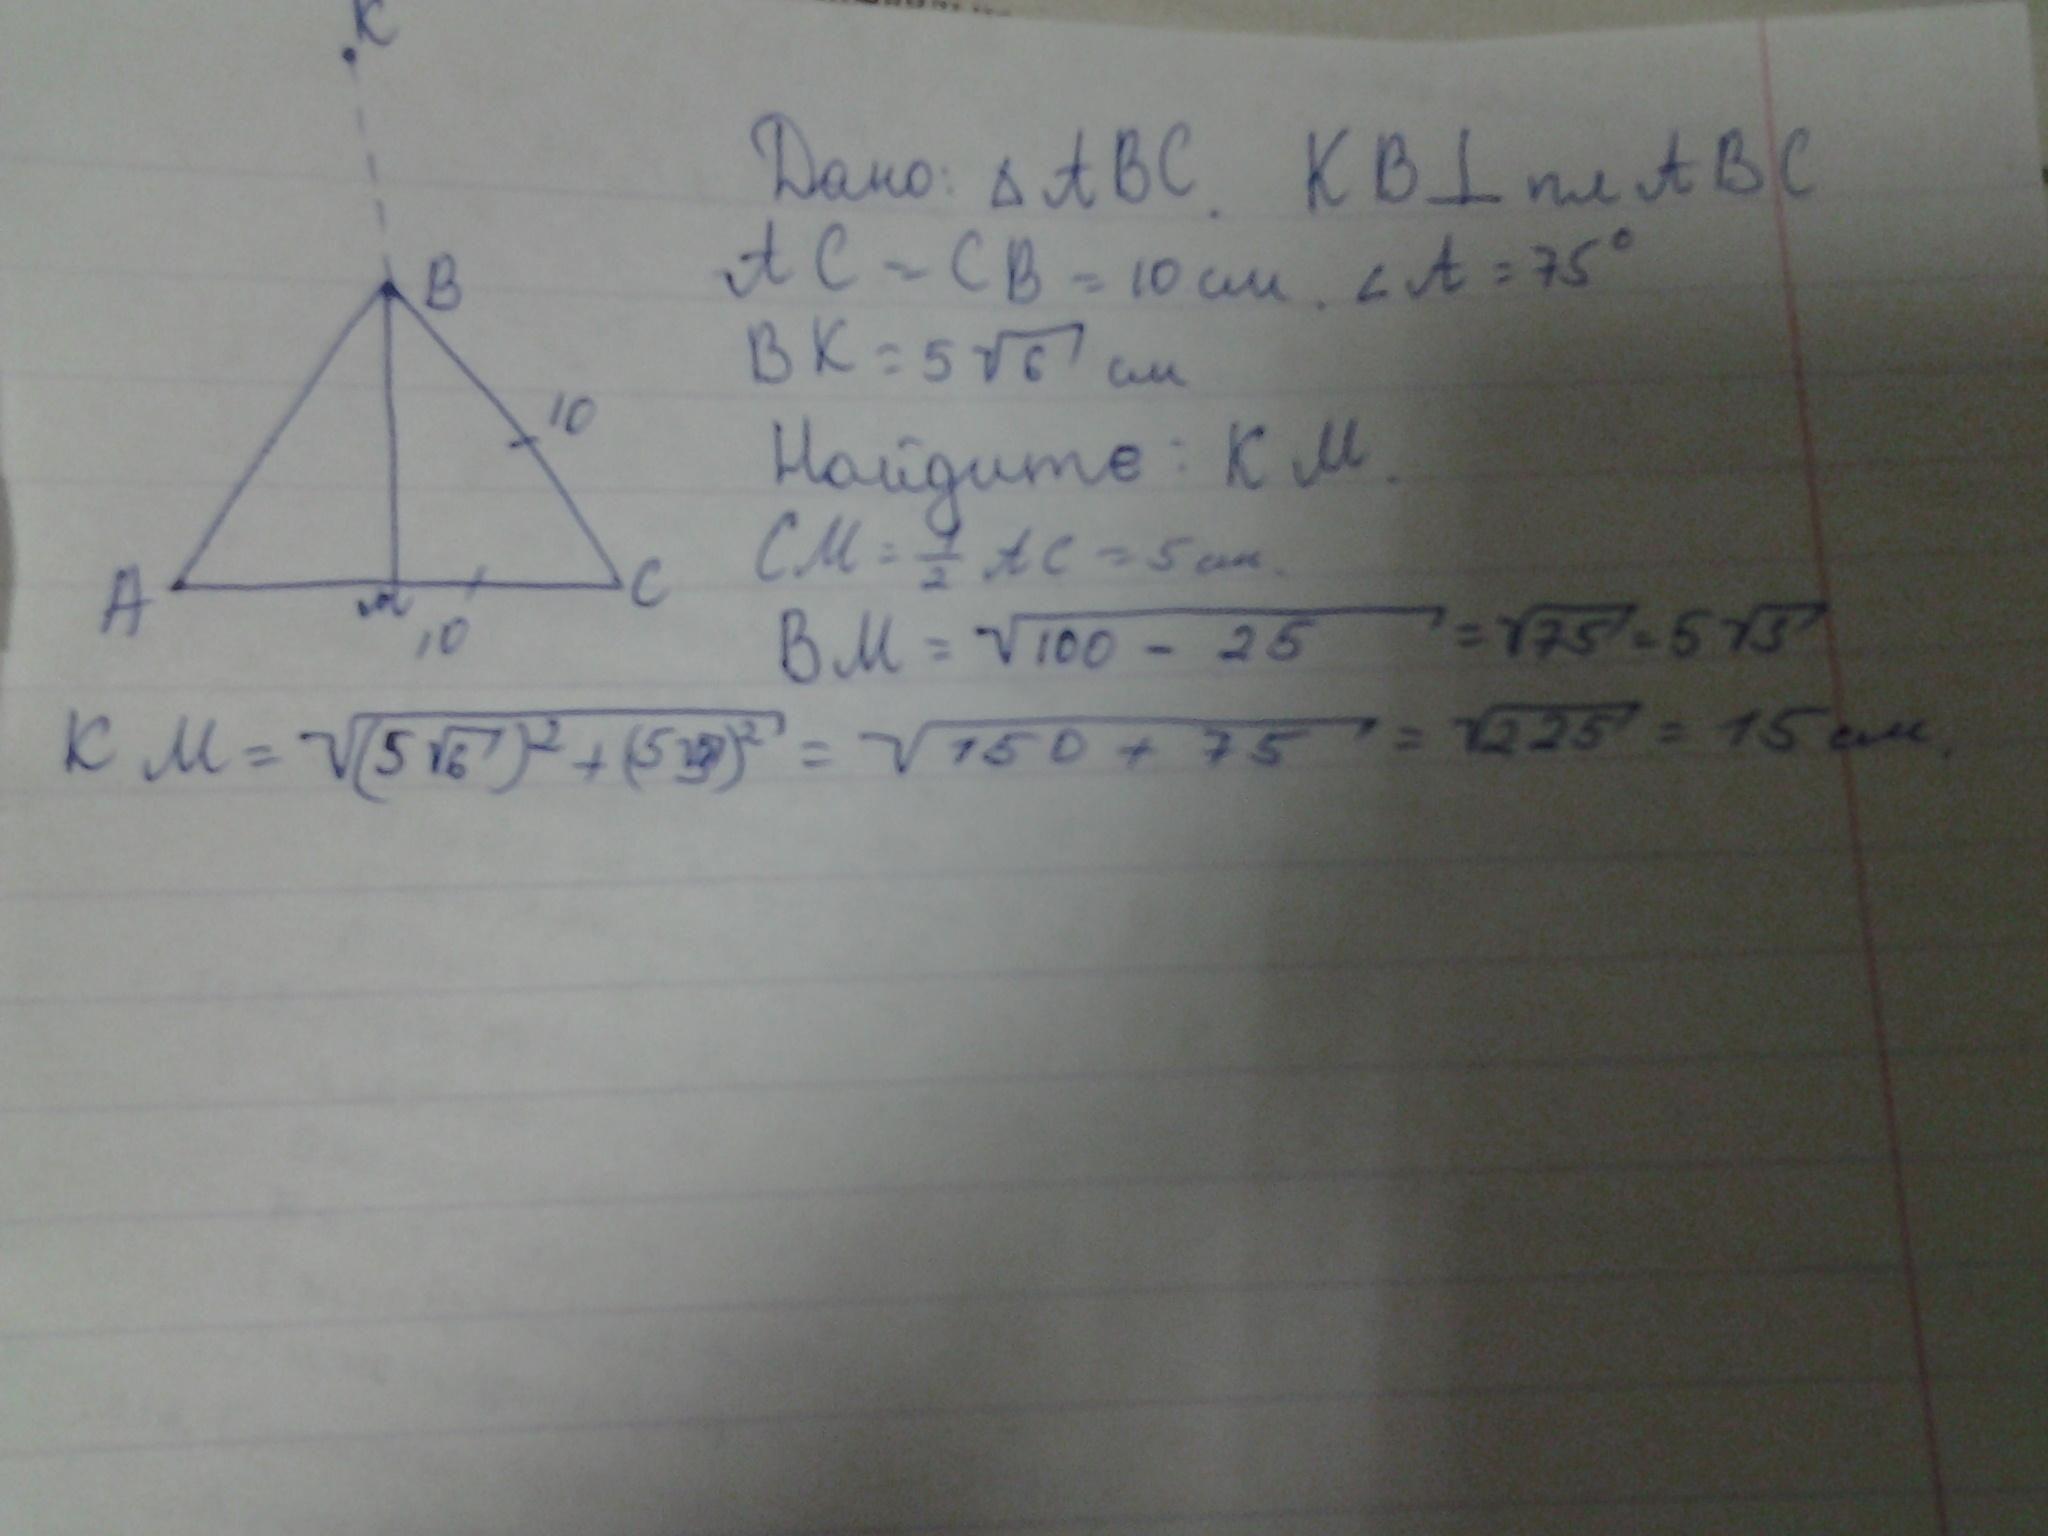 K
Дано: △ABC. KB⊥ пл ABC
AC = CB = 10 см. ∠A = 75°
BK = 5√6 см
Найдите: KM.
CM = 1/2 AC = 5 см.
BM = √100 - 25 = √75 = 5√3
KM = √(5√6)² + (5√3)² = √150 + 75 = √225 = 15 см.
B
10
A
M
C
10